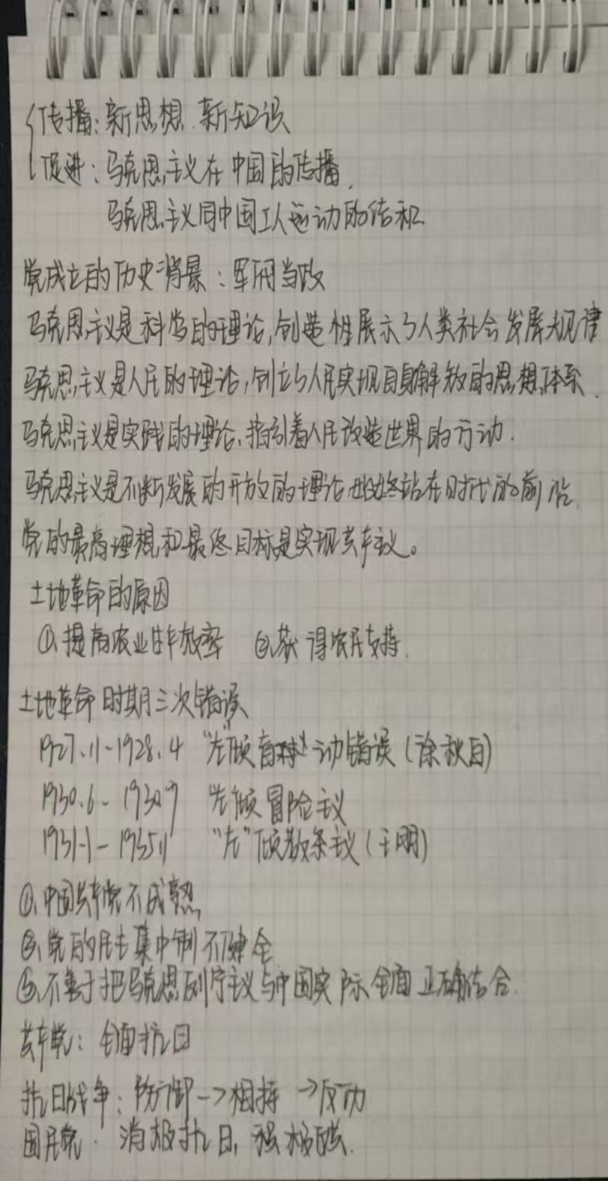 传播:新思想 新知识
促进:马克思主义在中国的传播.
马克思主义同中国工人运动的结和
党成立的历史背景:军阀当政
马克思主义是科学的理论,创造性展示了人类社会发展规律
马克思主义是人民的理论,创立了人民实现自身解放的思想体系.
马克思主义是实践的理论,指引着人民改造世界的行动.
马克思主义是不断发展的开放的理论 始终站在时代的前沿.
党的最高理想和最终目标是实现共产主义。
土地革命的原因
①.提高农业生产效率 ②.获得农民支持.
土地革命时期三次错误
1927.11-1928.4 "左"倾盲动错误(秋白)
1930.6-1930.9 "左"倾冒险主义
1931.1-1935.1 "左"倾教条主义(王明)
①.中国共产党不成熟
②.党的民主集中制不健全
③.不善于把马克思列宁主义与中国实际全面正确结合.
共产党:全面抗日
抗日战争:防御->相持->反攻
国民党:消极抗日,积极